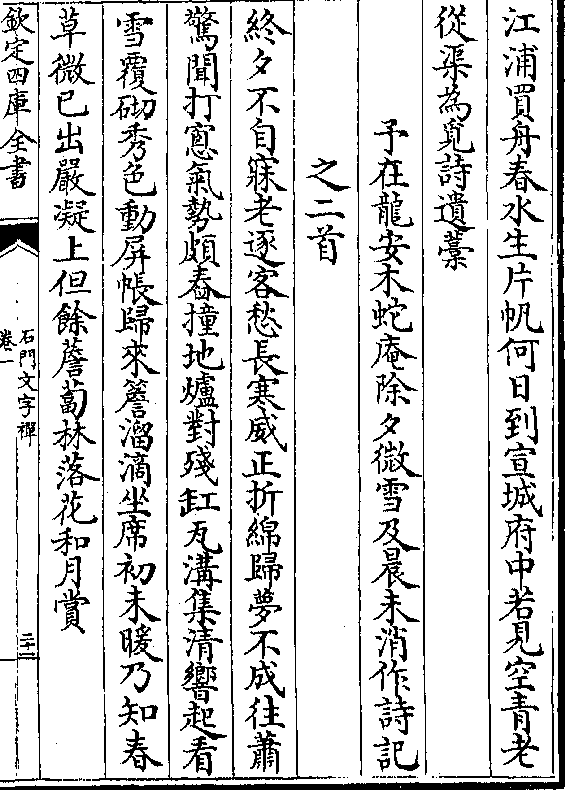 江浦買舟春水生片帆何日到宣城府中若見空青老
從渠為覓詩遺藁
予在龍安木蛇庵除夕微雪及晨未消作詩記
之二首
終夕不自寐老逐客愁長寒威正折綿歸夢不成往蕭
驚聞打窻氣勢頗舂撞地爐對殘缸瓦溝集清響起看
雪覆砌秀色動屏帳歸來簷溜滴坐席初未暖乃知春
草微已出嚴凝上但餘薝蔔林落花和月賞
欽定四庫全書
石門文字禪
卷一
二十二